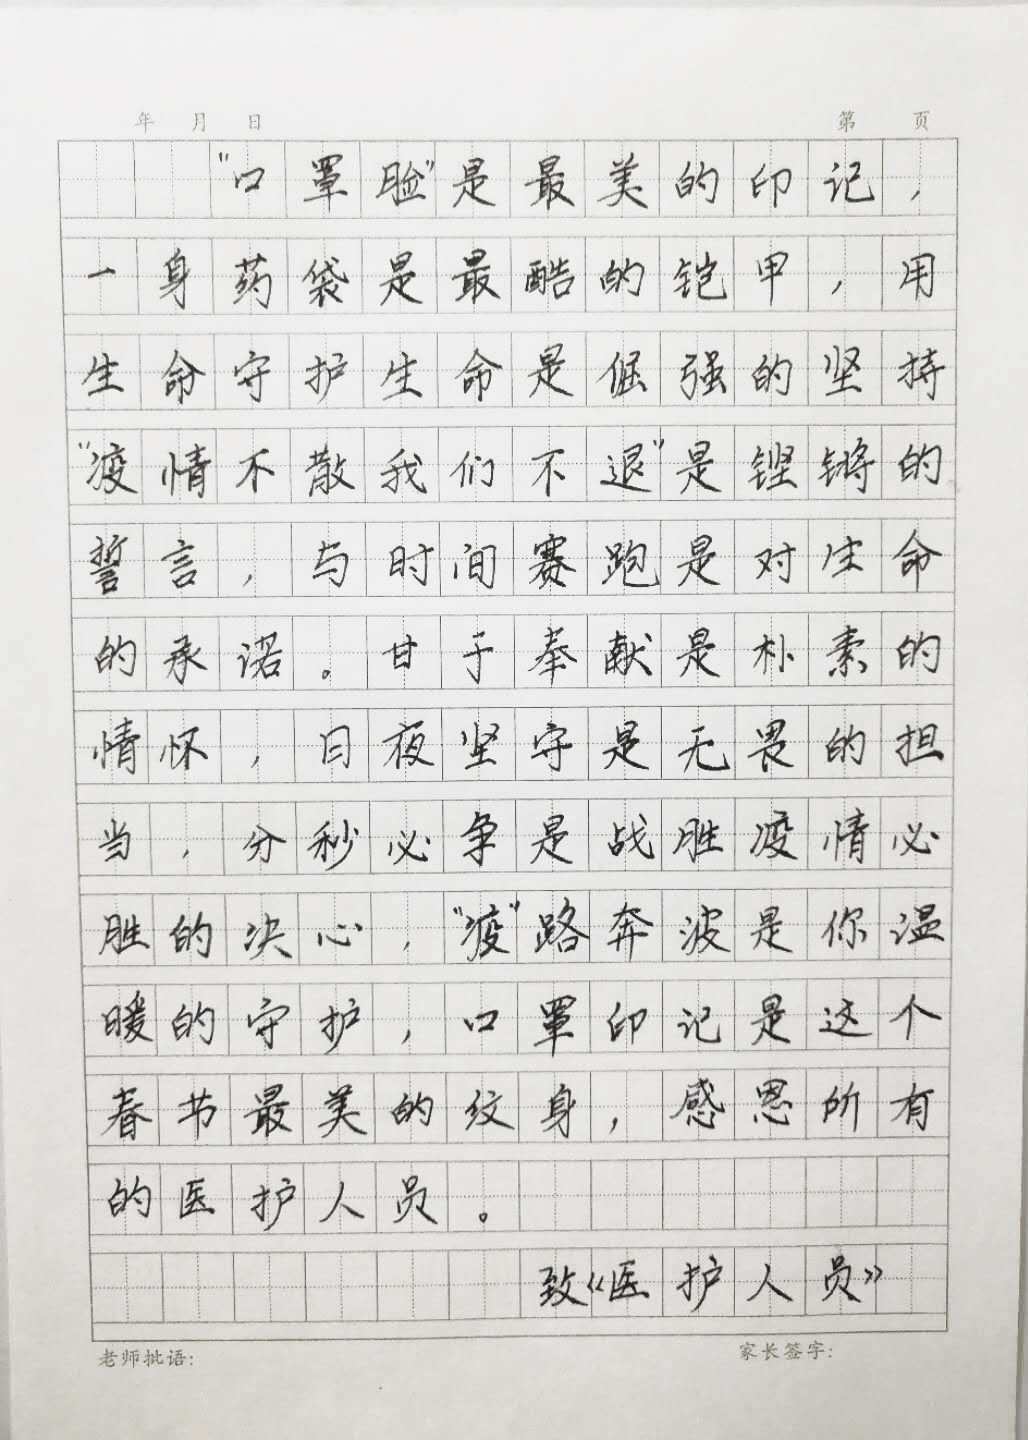 年 月 日 第 页
"口罩脸"是最美的印记，
一身药袋是最酷的铠甲，用
生命守护生命是倔强的坚持
"疫情不散我们不退"是铿锵的
誓言，与时间赛跑是对生命
的承诺。甘于奉献是朴素的
情怀，日夜坚守是无畏的担
当，分秒必争是战胜疫情必
胜的决心，"疫"路奔波是你温
暖的守护，口罩印记是这个
春节最美的纹身，感恩所有
的医护人员。
致《医护人员》
老师批语: 家长签字: